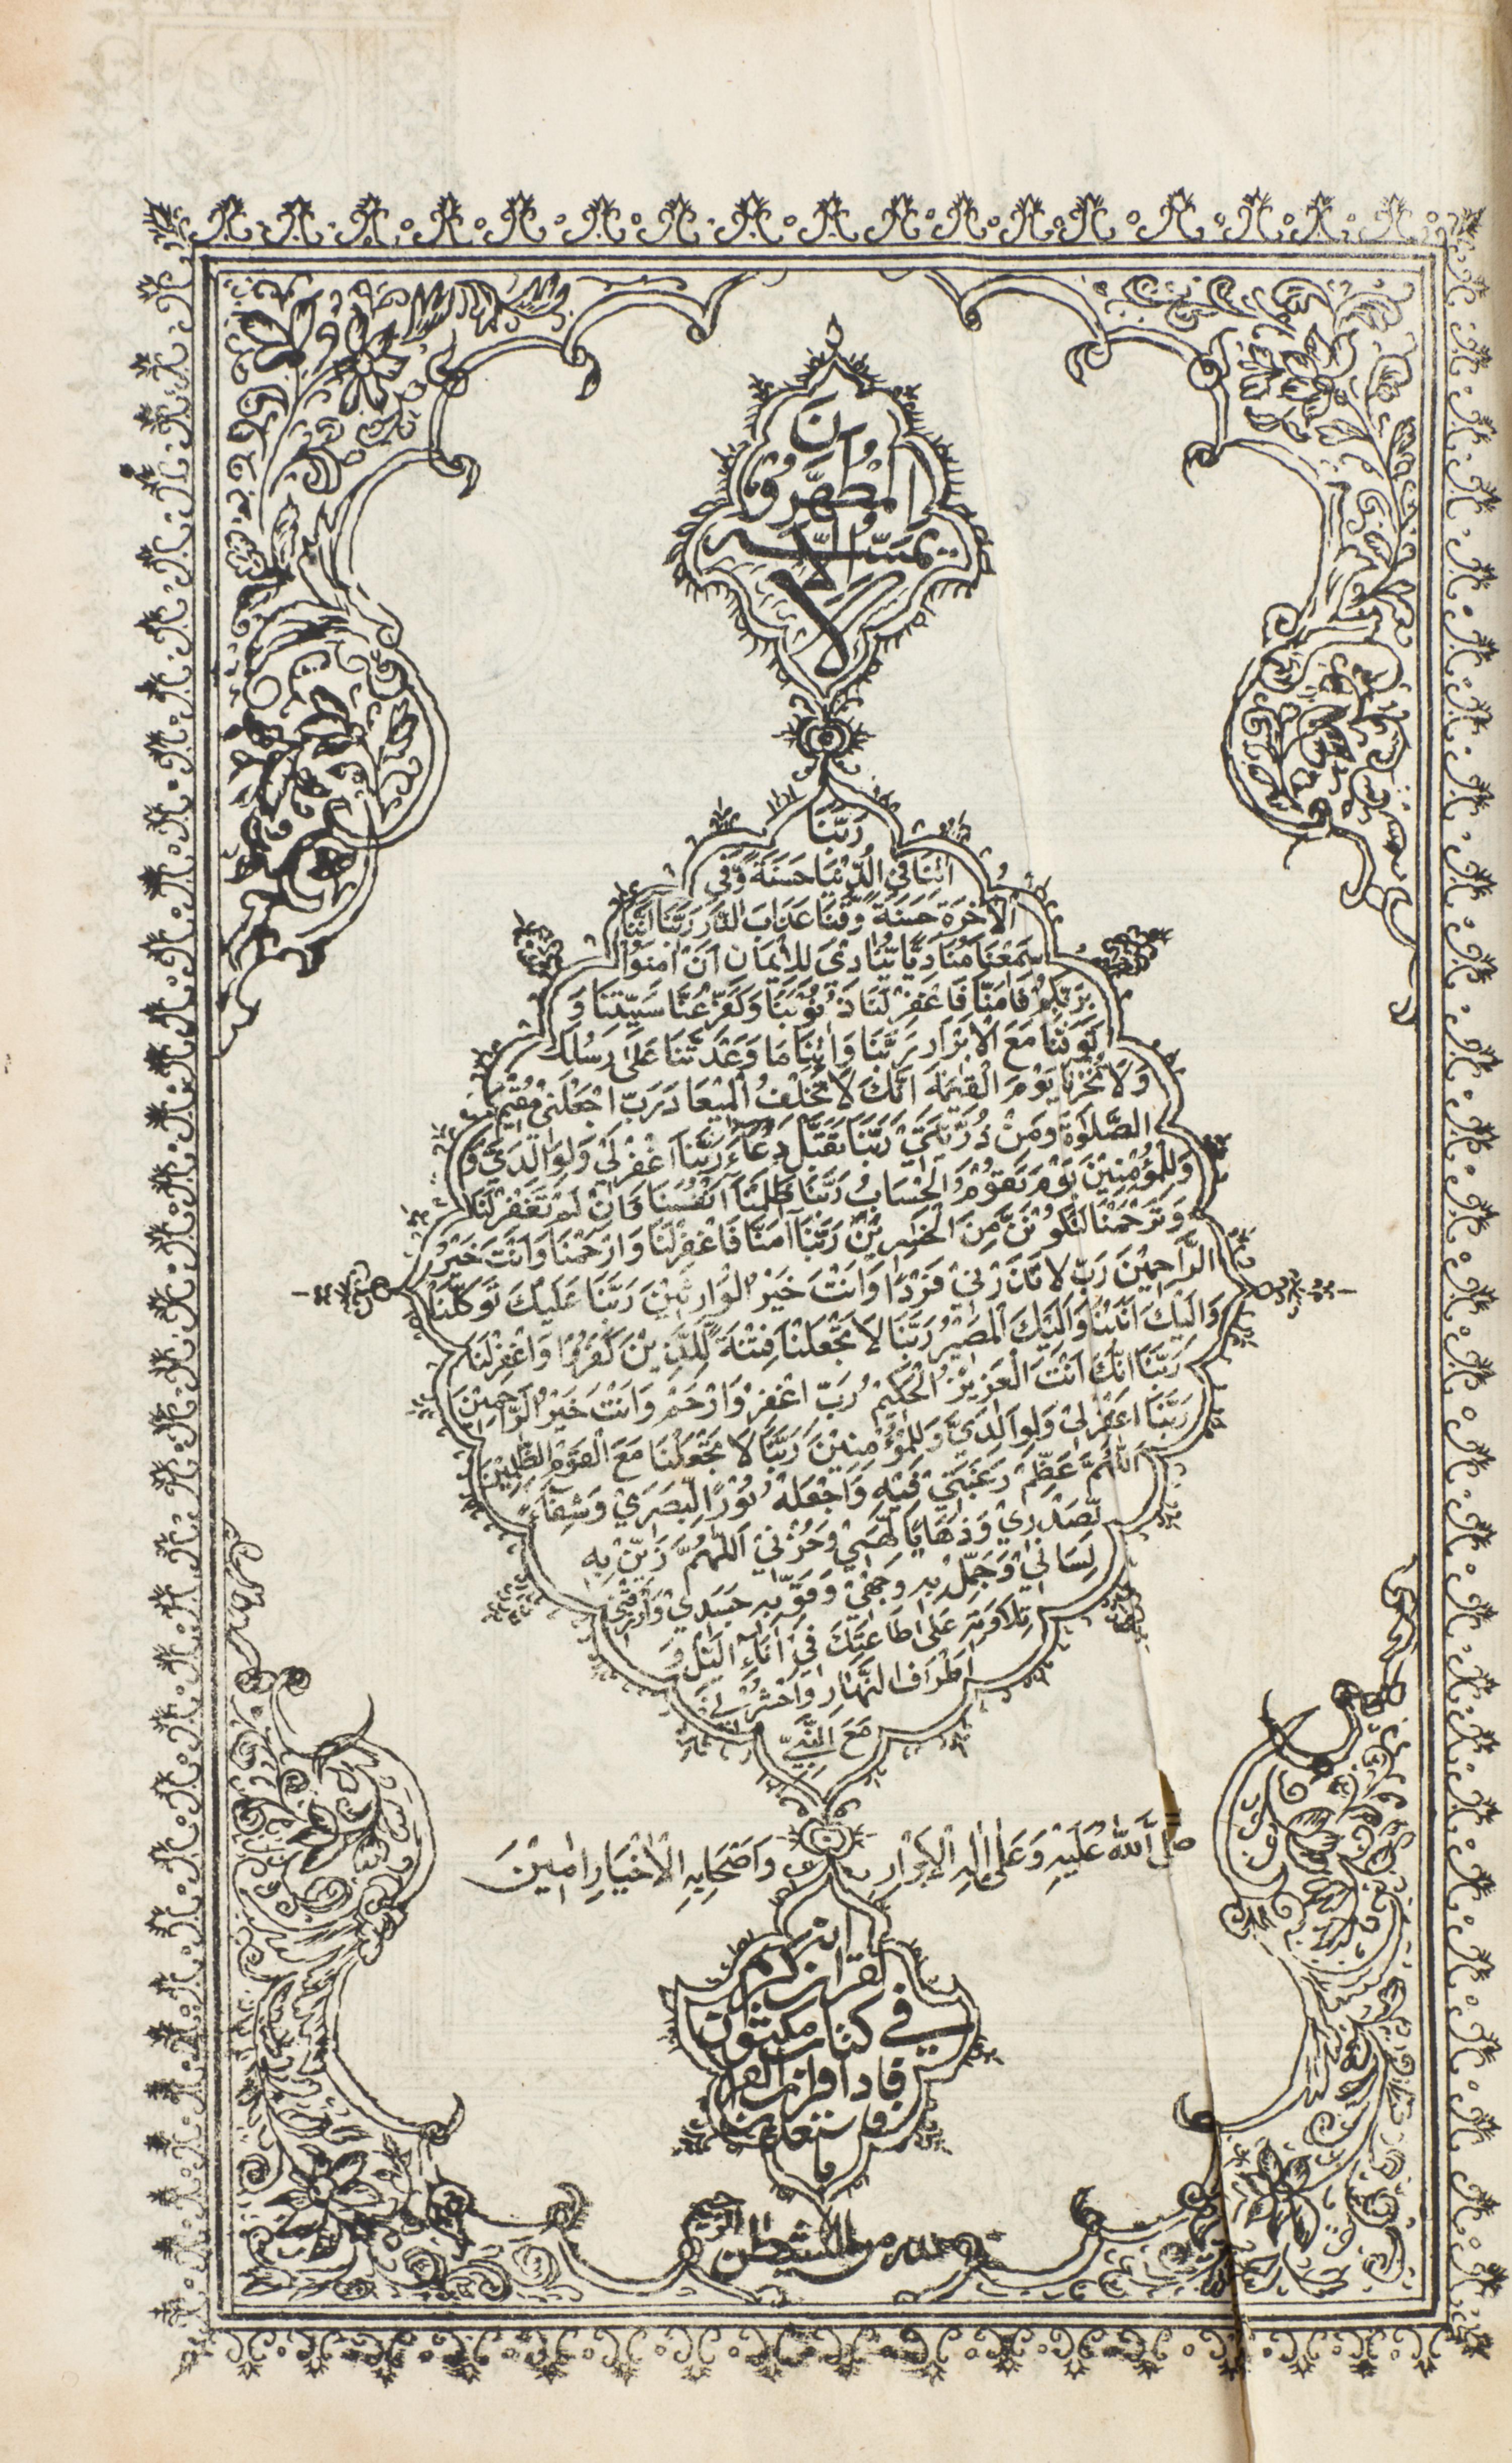 لا
يمسه الا
المطهرون
رَبَّنَا
اٰتِنَا فِي الدُّنْيَا حَسَنَةً وَّفِي
الْاٰخِرَةِ حَسَنَةً وَّقِنَا عَذَابَ النَّارِ رَبَّنَا اِنَّنَا
سَمِعْنَا مُنَادِيًا يُّنَادِيْ لِلْاِيْمَانِ اَنْ اٰمِنُوْا
بِرَبِّكُمْ فَاٰمَنَّا فَاغْفِرْ لَنَا ذُنُوْبَنَا وَكَفِّرْ عَنَّا سَيِّئٰتِنَا وَ
تَوَفَّنَا مَعَ الْاَبْرَارِ رَبَّنَا وَاٰتِنَا مَا وَعَدْتَّنَا عَلٰى رُسُلِكَ
وَلَا تُخْزِنَا يَوْمَ الْقِيٰمَةِ اِنَّكَ لَا تُخْلِفُ الْمِيْعَادَ رَبِّ اجْعَلْنِيْ مُقِيْمَ
الصَّلٰوةِ وَمِنْ ذُرِّيَّتِيْ رَبَّنَا تَقَبَّلْ دُعَاءِ رَبَّنَا اغْفِرْ لِيْ وَلِوَالِدَيَّ وَ
وَلِلْمُؤْمِنِيْنَ يَوْمَ يَقُوْمُ الْحِسَابُ رَبَّنَا ظَلَمْنَا اَنْفُسَنَا فَاِنْ لَمْ تَغْفِرْ لَنَا
وَتَرْحَمْنَا لَنَكُوْنَنَّ مِنَ الْخٰسِرِيْنَ رَبَّنَا اٰمَنَّا فَاغْفِرْ لَنَا وَارْحَمْنَا وَاَنْتَ خَيْرُ
الرَّاحِمِيْنَ رَبِّ لَا تَذَرْنِيْ فَرْدًا وَّاَنْتَ خَيْرُ الْوَارِثِيْنَ رَبَّنَا عَلَيْكَ تَوَكَّلْنَا
وَاِلَيْكَ اَنَبْنَا وَاِلَيْكَ الْمَصِيْرُ رَبَّنَا لَا تَجْعَلْنَا فِتْنَةً لِّلَّذِيْنَ كَفَرُوْا وَاغْفِرْ لَنَا
رَبَّنَا اِنَّكَ اَنْتَ الْعَزِيْزُ الْحَكِيْمُ رَبِّ اغْفِرْ وَارْحَمْ وَاَنْتَ خَيْرُ الرَّاحِمِيْنَ
رَبَّنَا اغْفِرْ لِيْ وَلِوَالِدَيَّ وَلِلْمُؤْمِنِيْنَ رَبَّنَا لَا تَجْعَلْنَا مَعَ الْقَوْمِ الظّٰلِمِيْنَ
اَللّٰهُمَّ عَظِّمْ رَغْبَتِيْ فِيْهِ وَاجْعَلْهُ نُوْرًا لِّبَصَرِيْ وَشِفَآءً
لِّصَدْرِيْ وَذَهَابًا لِّهَمِّيْ وَحُزْنِيْ اَللّٰهُمَّ زَيِّنْ بِهِ
لِسَانِيْ وَجَمِّلْ بِهِ وَجْهِيْ وَقَوِّ بِهِ جَسَدِيْ وَارْزُقْنِيْ
تِلَاوَتَهُ عَلٰى طَاعَتِكَ فِيْ اٰنَآءِ الَّيْلِ وَ
اَطْرَافَ النَّهَارِ وَاحْشُرْنِيْ
مَعَ النَّبِيِّ
صلى اللّٰهُ عَلَيْهِ وَعَلٰى اٰلِهِ الْاَبْرَارِ وَاَصْحَابِهِ الْاَخْيَارِ اٰمِيْنَ
انه
لقران كريم
في كتاب مكنون
فاذا قرات القران
فاستعذ
بالله من الشيطن الرجيم